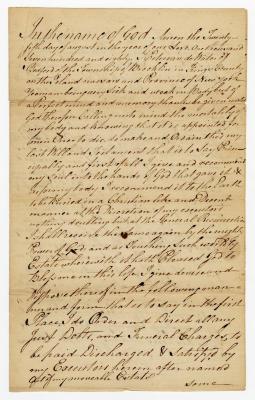 In the name of God Amen the Twenty
fifth day of august in the year of our Lord One thousand
Seven hundred and eighty I
the Township of Brooklin in Kings County
on the Island Nassaw and Province of New York
Yeoman being very Sick and weak in Body but of
a Perfect mind and memory thanks be given unto
God therefore Calling unto mind the mortality of
my body and knowing that it is appointed for
men Once to die do make and Ordain this my
last Will and Testament that is to Say Prin=
cipally and first of all I give and recommend
my Soul into the hands of God that gave it &
for my body I recommend it to the Earth
to be Buried in a Christian like and Decent
manner at the Discretion of my executors
nothing doubting but at the General Resurrection
I shall Receive the Same again by the mighty
Power of God and as Touching Such worldly
Estate wherewith it hath Pleased God to
Bless me in this life I give devise and
dispose thereof in the following man=
ner and form that is to say in the first
Place I do Order and Direct all my
Just Debts, and Funeral Charges, to
be paid Discharged & Satisfied by
my Executors herein after named
of my moveable Estate
some